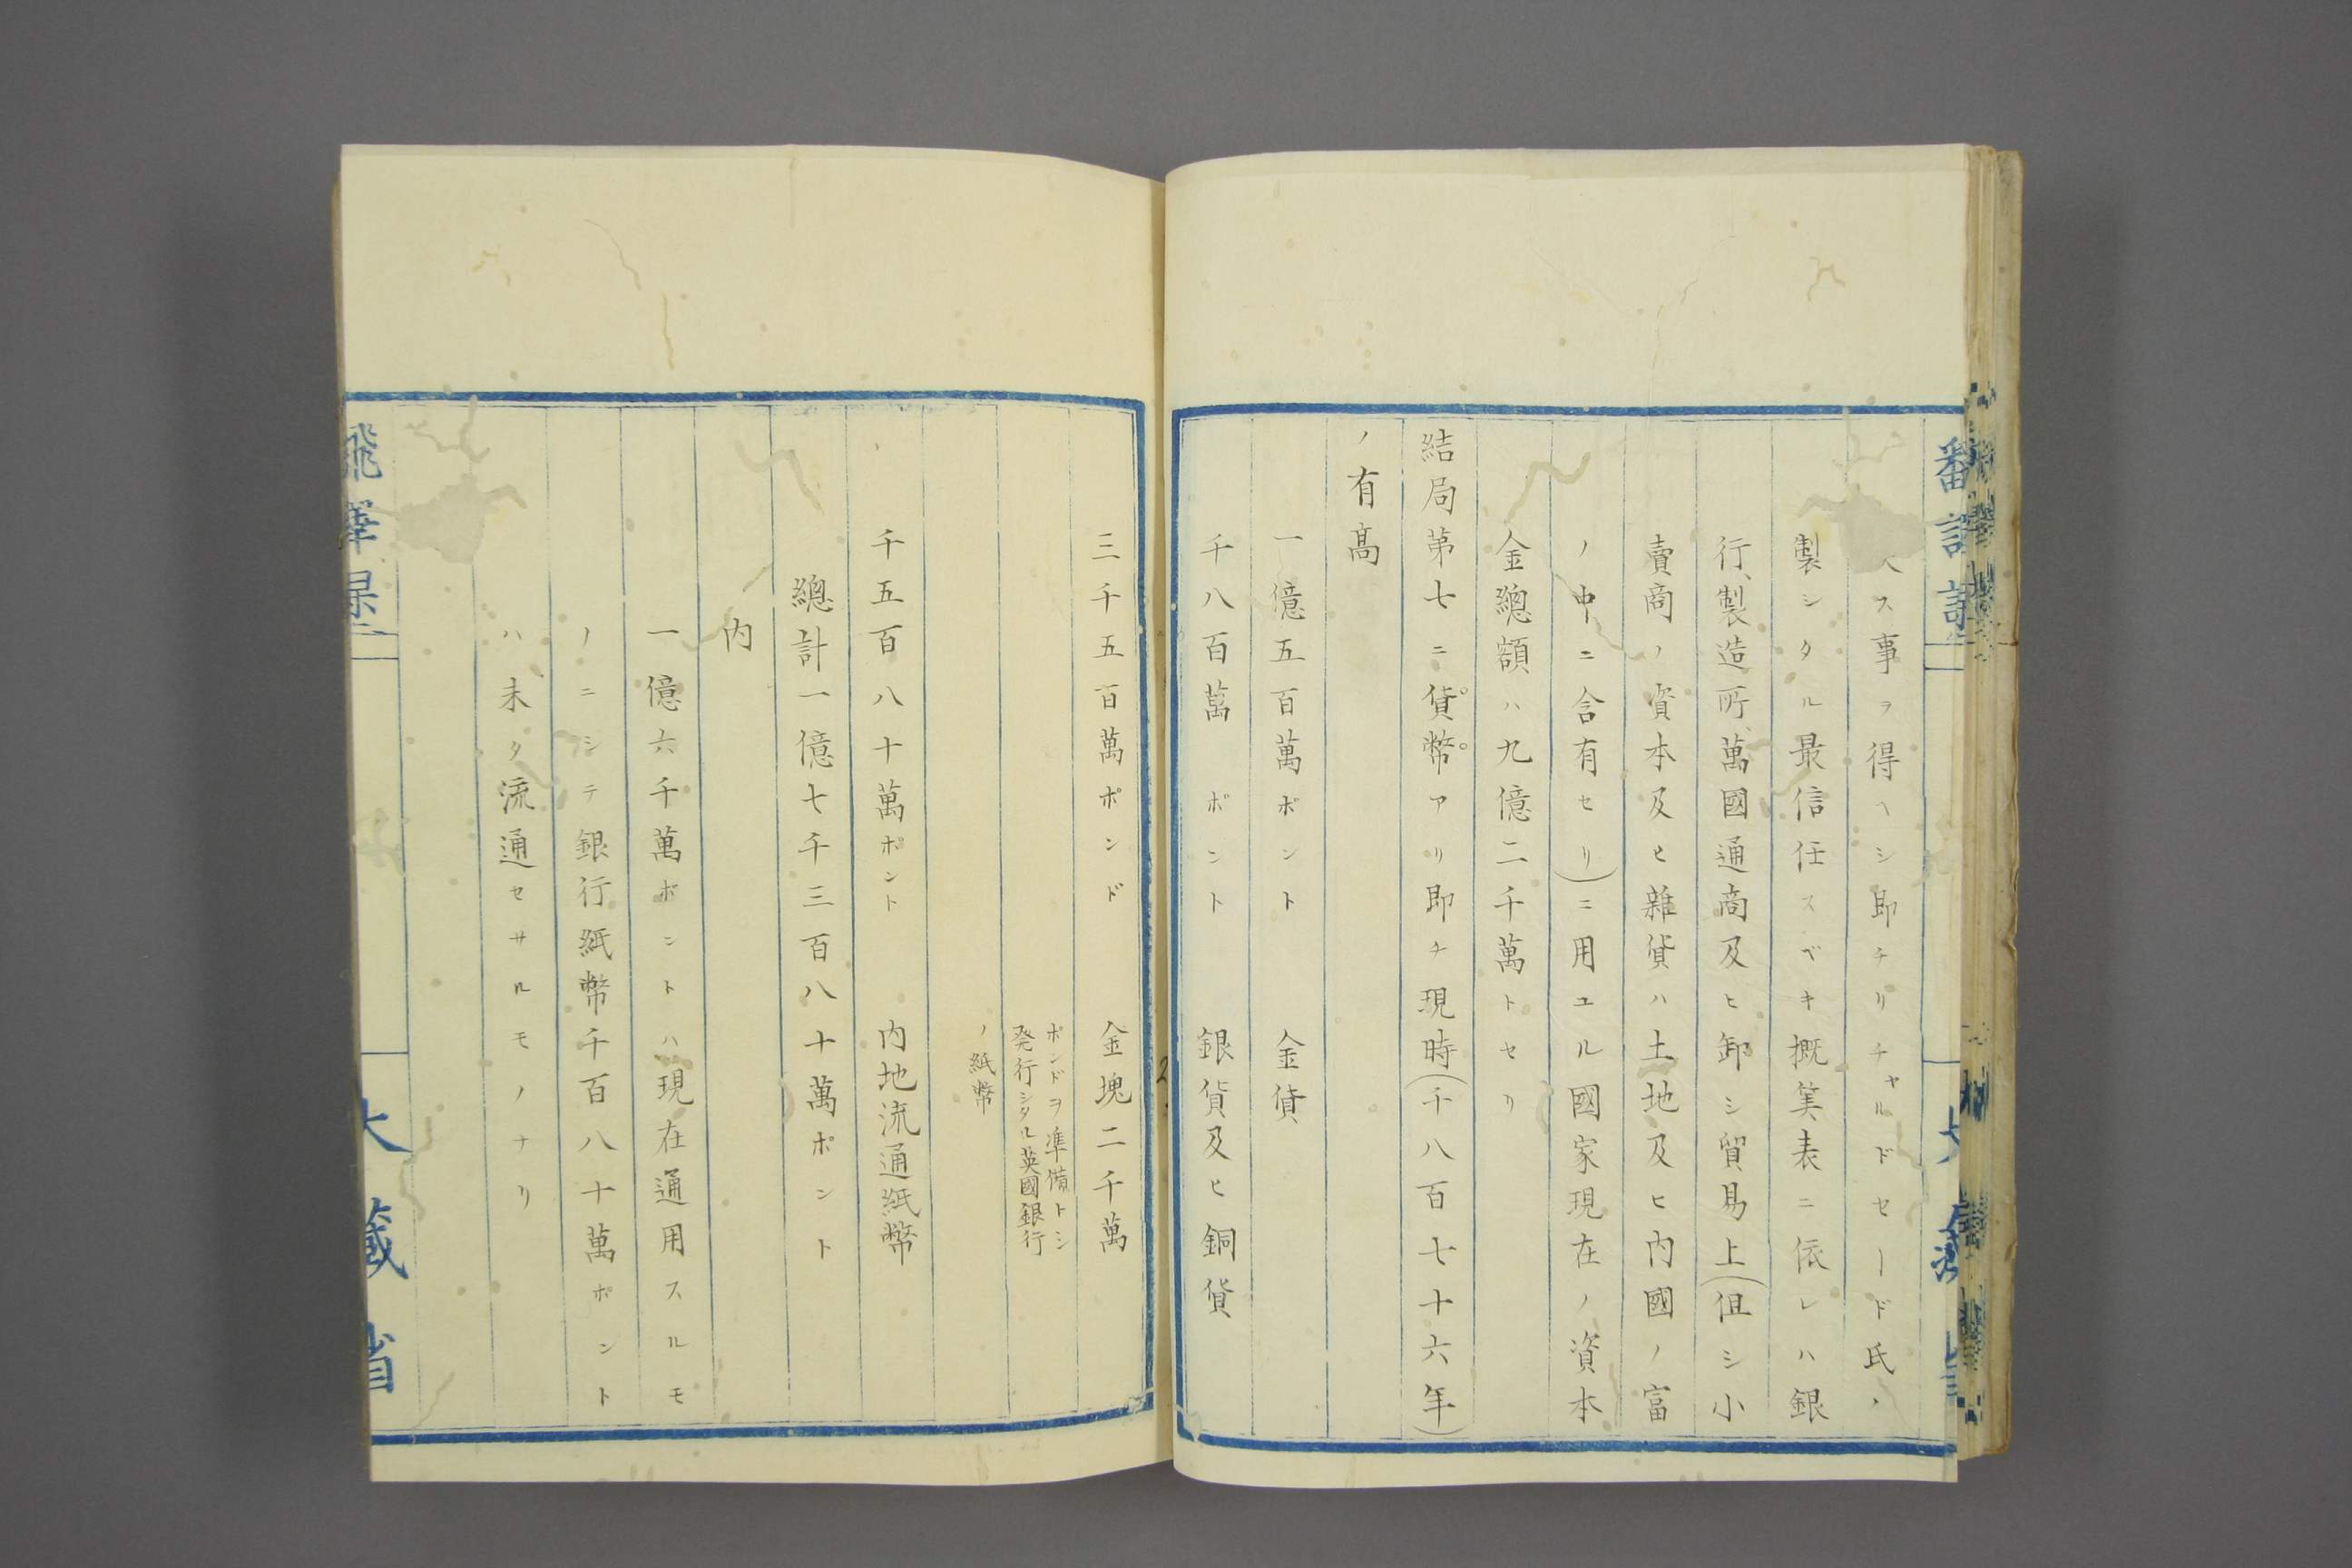 ス事ヲ得ヘシ即チリチャルドセード氏ノ
製シタル最信任スベキ概算表ニ依レハ銀
行、製造所、萬國通商及ヒ卸シ貿易上(但シ小
賣商ノ資本及ヒ雜貨ハ土地及ヒ内國ノ富
ノ中ニ含有セリ)ニ用ユル國家現在ノ資本
金總額ハ九億二千萬トセリ
結局第七ニ貨幣アリ即チ現時(千八百七十六年)
ノ有髙
一億五百萬ボント 金貨
千八百萬ボント 銀貨及ヒ銅貨
三千五百萬ポンド 金塊二千萬
ポンドヲ準備トシ
発行シタル英國銀行
ノ紙幣
千五百八十萬ポント 内地流通紙幣
總計一億七千三百八十萬ポント
内
一億六千萬ボントハ現在通用スルモ
ノニシテ銀行紙幣千百八十萬ポント
ハ未タ流通セサルモノナリ
大藏省